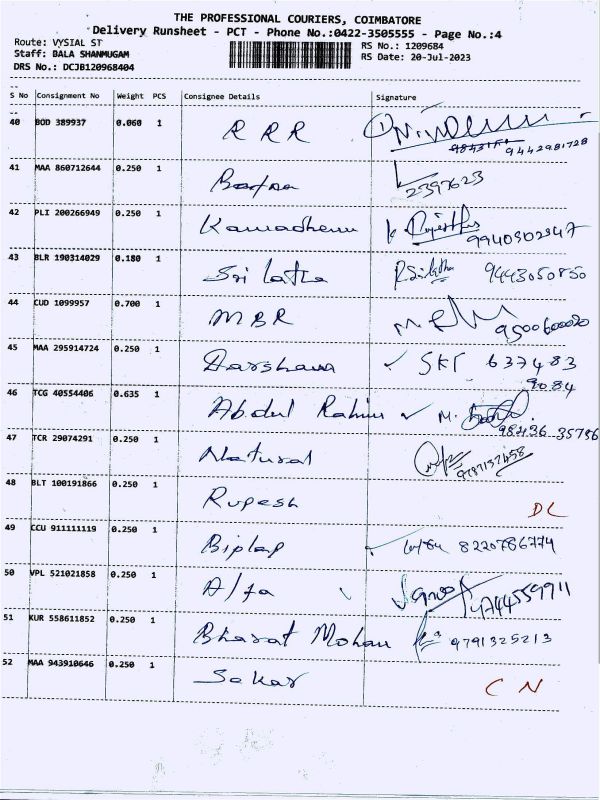 THE PROFESSIONAL COURIERS, COIMBATORE
Delivery Runsheet - PCT - Phone No.:0422-3505555 - Page No.:4
Route: VYSIAL ST
Staff: BALA SHANMUGAM
DRS No.: DCJB120968404
RS No.: 1209684
RS Date: 20-Jul-2023
S No Consignment No Weight PCS Consignee Details Signature
40 BOD 389937 0.060 1 RRR
9442981728
41 MAA 860712644 0.250 1
2397623
42 PLI 200266949 0.250 1 Kamadhenu
9940502347
43 BLR 190314029 0.180 1 Sri latha R.Srilatha 9443050850
44 CUD 1099957 0.700 1 MBR
9500600020
45 MAA 295914724 0.250 1 Darshana SKT 637483
9084
46 TCG 40554406 0.635 1 Abdul Rahim M.
98436 35756
47 TCR 29074291 0.250 1 Natural
9787137458
48 BLT 100191866 0.250 1 Rupesh DL
49 CCU 911111119 0.250 1 Biplap 8220786774
50 VPL 521021858 0.250 1 Alfa
9744559911
51 KUR 558611852 0.250 1 Bharat Mohan 9791325213
52 MAA 943910646 0.250 1 Sekar CN